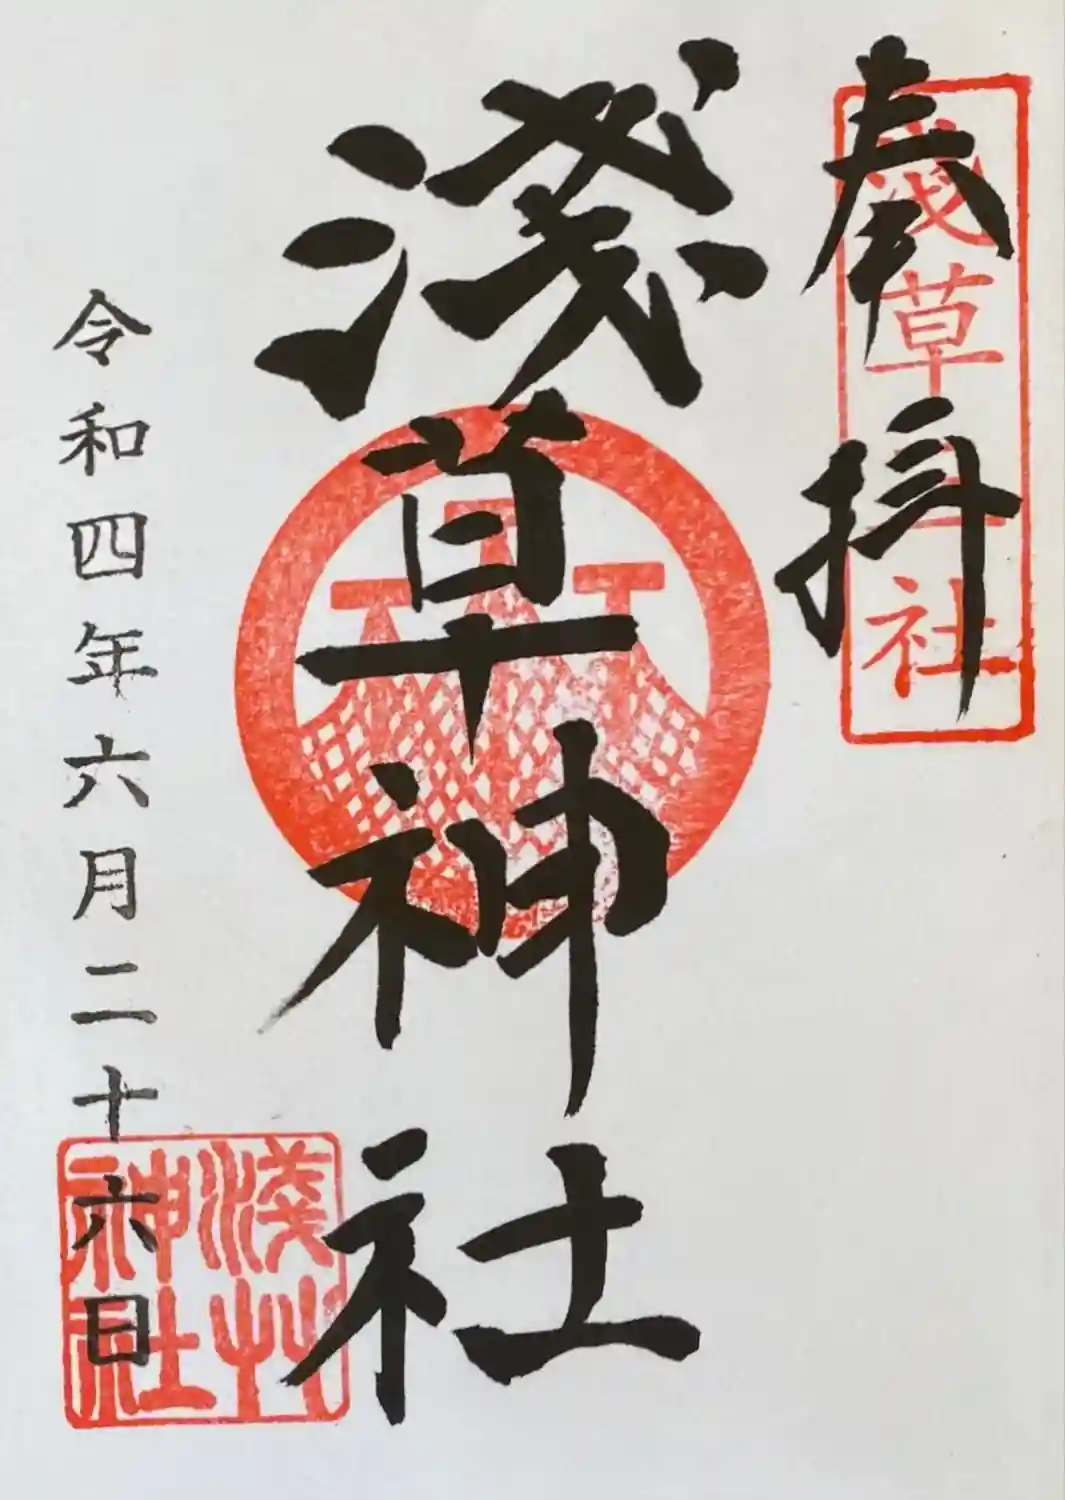 奉拝
淺草三社
淺草神社
淺草神社
令和四年六月二十六日